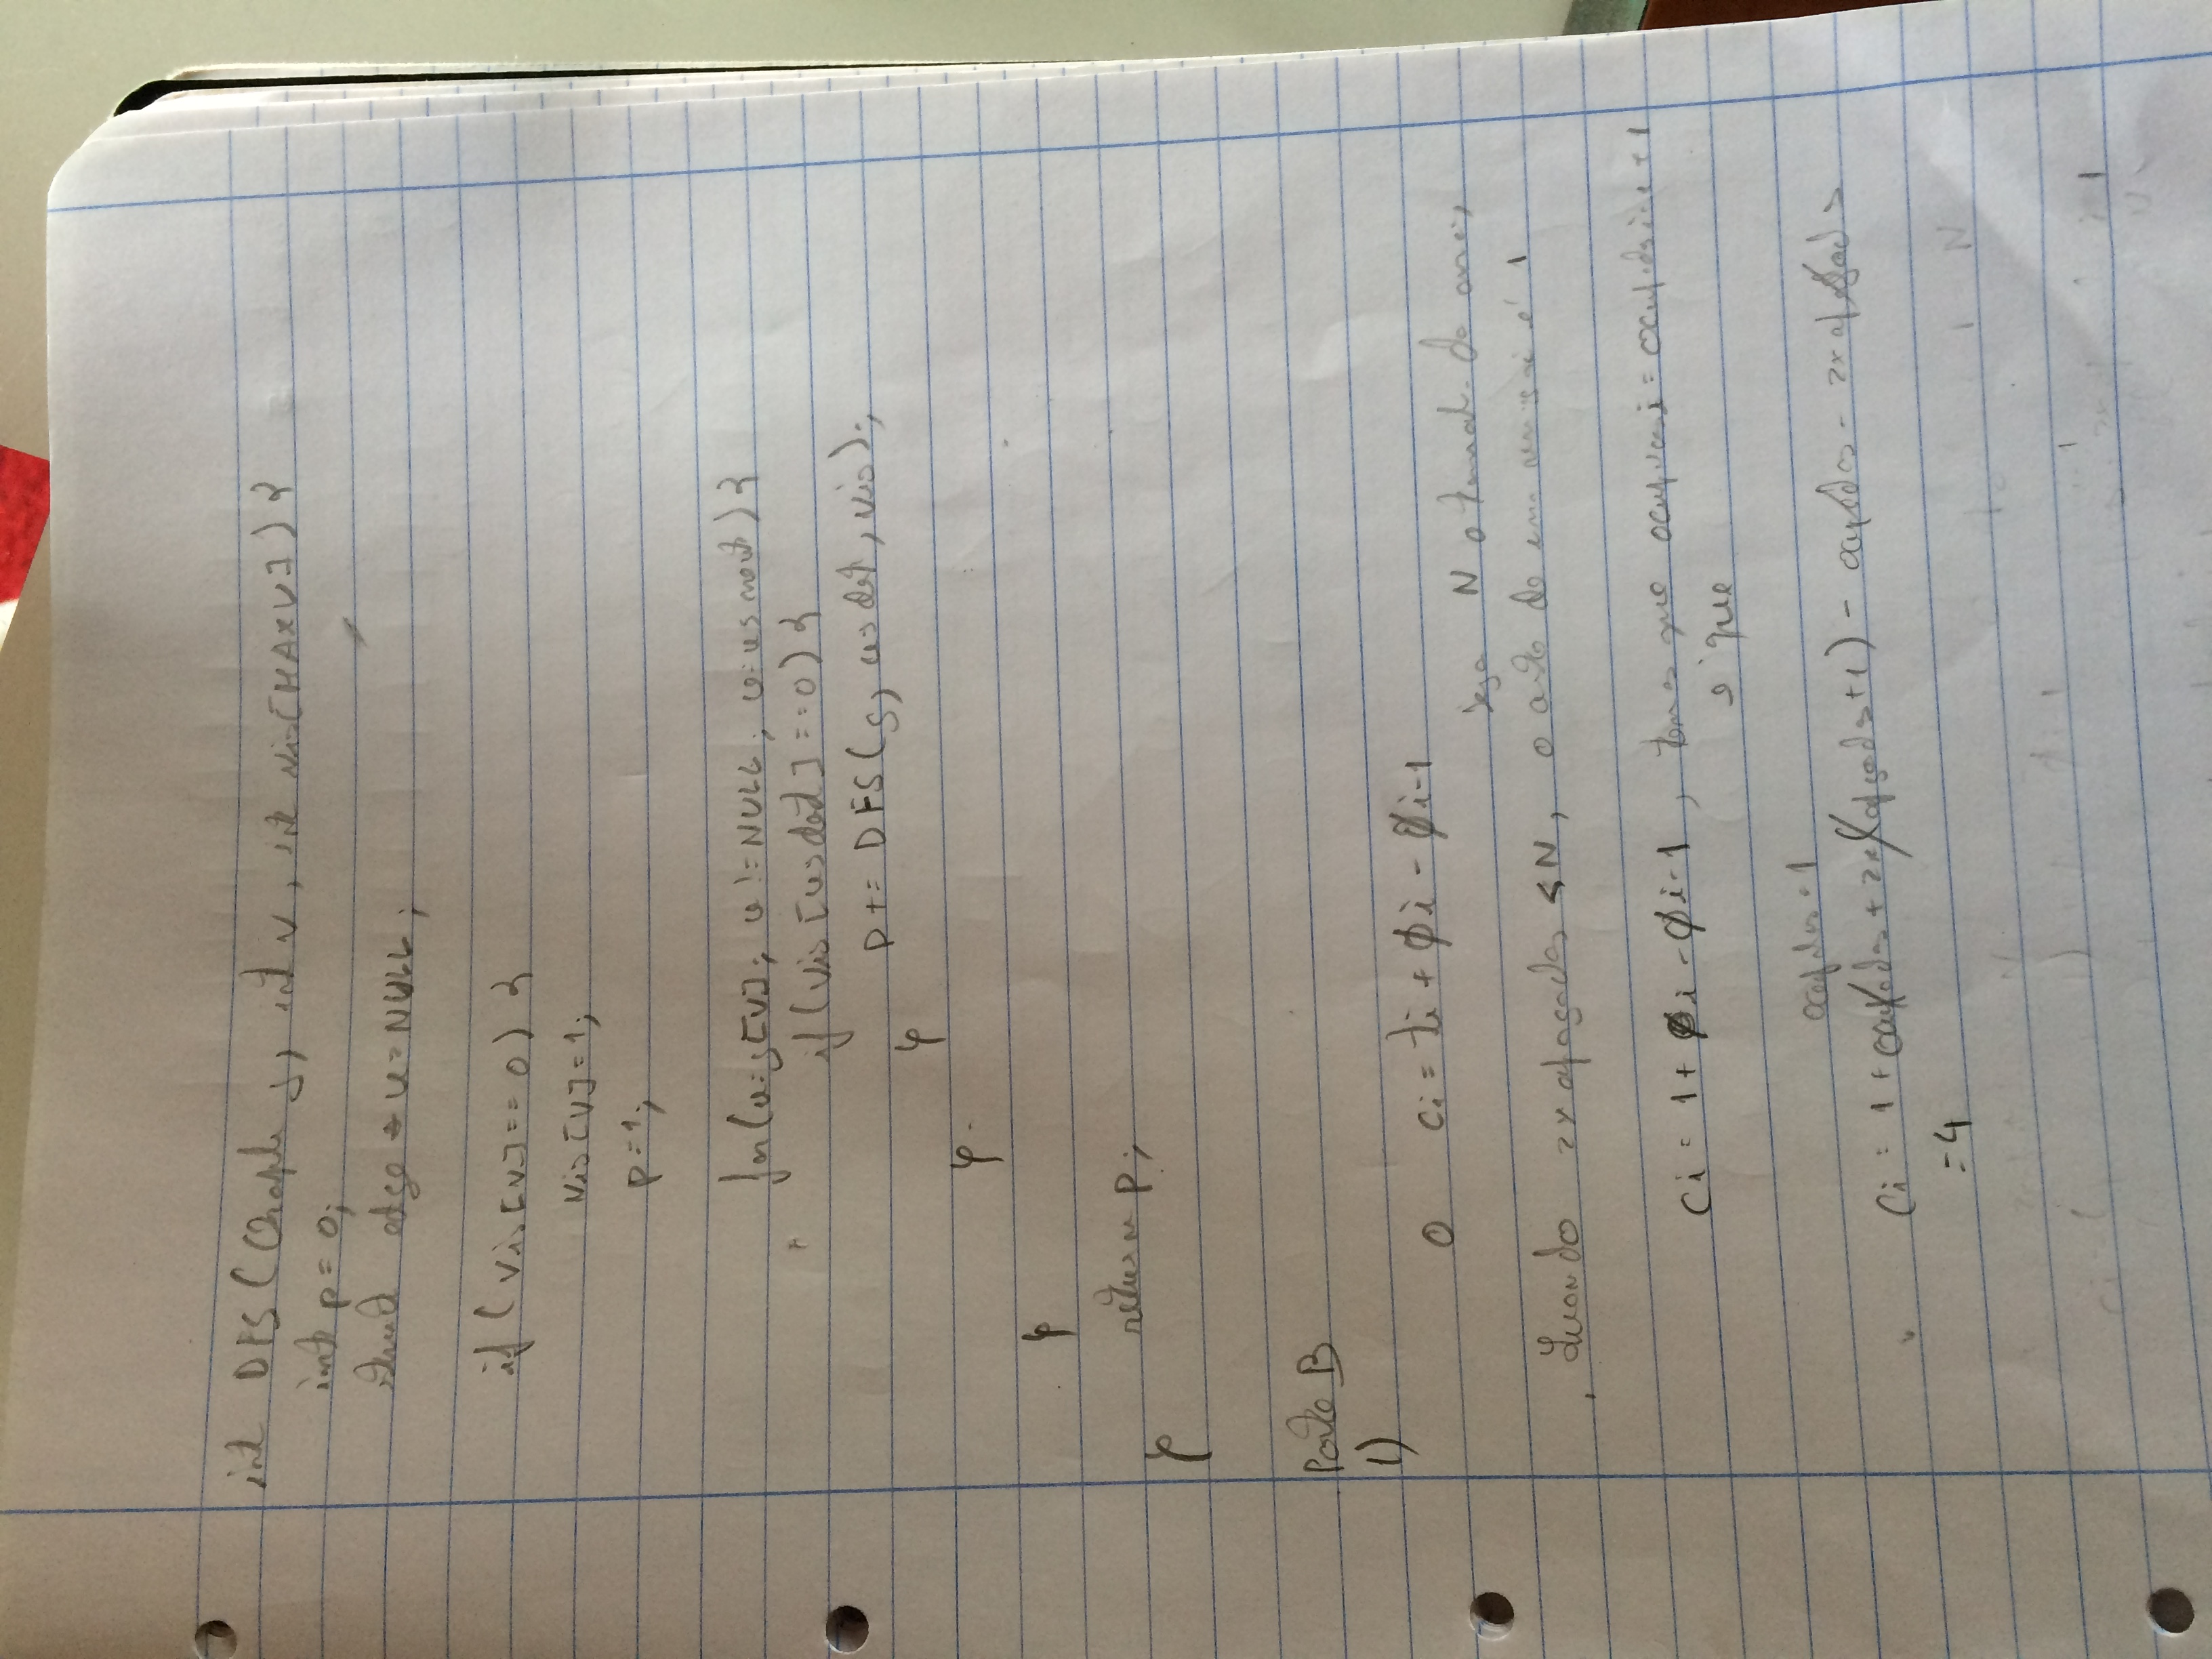 int DFS (Graph g, int v, int vis[MAXV]) {
int p = 0;
struct edge * u = NULL;
if (vis[v] == 0) {
vis[v] = 1;
p = 1;
for (u = g[v]; u != NULL; u = u->next) {
if (vis[u->dest] == 0) {
p += DFS(g, u->dest, vis);
}
}
}
return p;
}
Parte B
1)
O ci = ti + Φi - Φi-1
Seja N o
Quando 2x apagados ≤ N, o custo de uma é 1
ci = 1 + Φi - Φi-1, temos que ocupados i = ocupados i-1 + 1
e que
ocupados + 1
ci = 1 + ocupados + 2x(apagados+1) - ocupados - 2x apagados
= 4